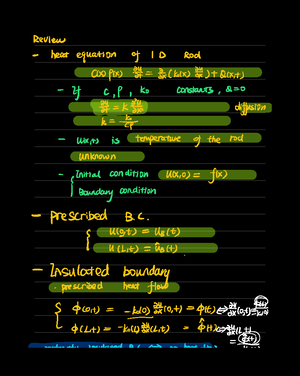 Review
- heat equation of 1D Rod
C(x) ρ(x) ∂u/∂t = ∂/∂x (k₀(x) ∂u/∂x) + Q(x,t)
- If c, ρ, k₀ constants, Q=0
∂u/∂t = k ∂²u/∂x² diffusion
k = k₀/cρ
- u(x,t) is temperature of the rod
unknown
- Initial condition u(x,0) = f(x)
Boundary condition
- prescribed B.C.
u(0,t) = u_B(t)
u(L,t) = u_B(t)
- Insulated boundary
prescribed heat flow
φ(0,t) = -k₀(0) ∂u/∂x (0,t) = φ(t) ⇔ ∂u/∂x (0,t) =
φ(L,t) = -k₀(L) ∂u/∂x (L,t) =